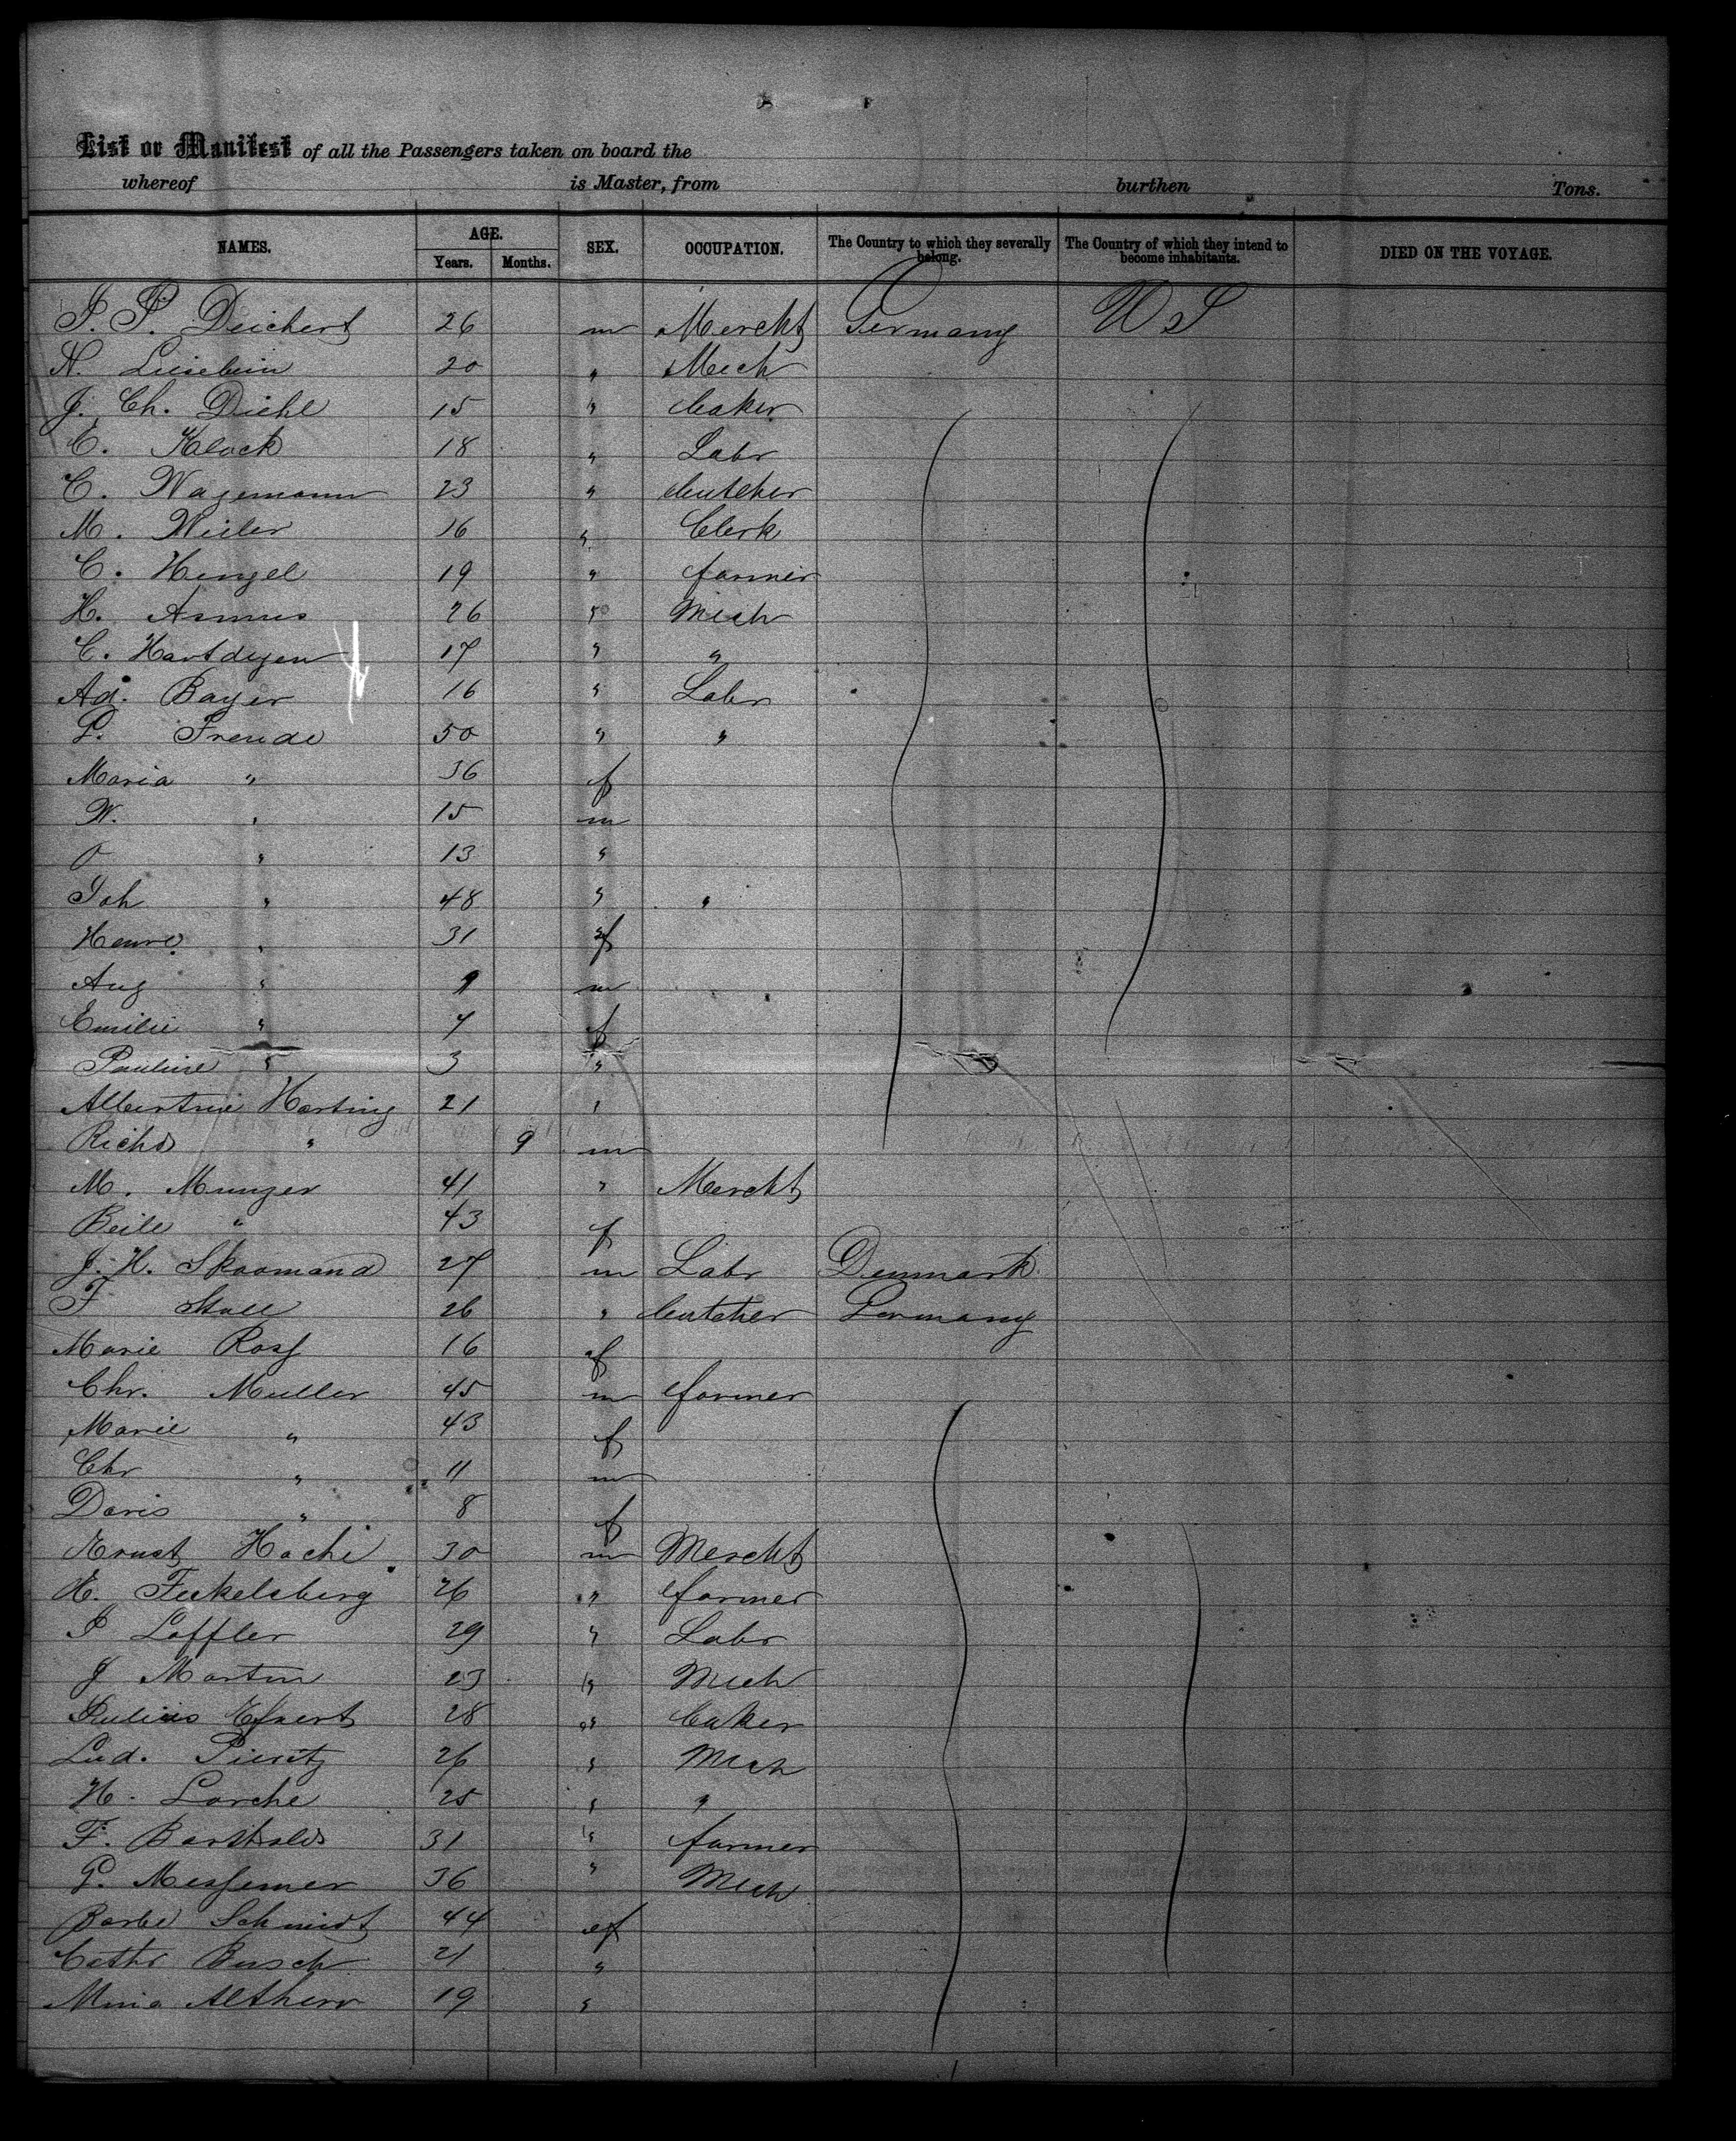 List or Manifest of all the Passengers taken on board the
whereof is Master, from burthen Tons.
NAMES. AGE. Years. Months. SEX. OCCUPATION. The Country to which they severally belong. The Country of which they intend to become inhabitants. DIED ON THE VOYAGE.
J. P. Deichert 26 m Mercht Germany U S
N. 20 " Mech
J. Ch. Diehl 15 " baker
C. Klock 18 " Labr
C. Wagemann 23 " butcher
M. Weiler 16 " Clerk
C. Hengel 19 " farmer
H. Asmus 26 " Mech
C. Hartdegen 17 " "
Ad. Bayer 16 " Labr
P. Freude 50 " "
Maria " 36 f
W. " 15 m
O " 13 "
Joh " 48 " "
Henre " 31 f
Aug " 9 m
Emilie " 7 f
Pauline " 3 "
Albertine Harting 21 "
Richd " 9 m
M. Munzer 41 " Mercht
Beile " 43 f
J. H. Skoomand 27 m Labr Denmark
F Stoll 26 " butcher Germany
Marie Ross 16 f
Chr. Muller 45 m farmer
Marie " 43 f
Chr " 11 m
Doris " 8 f
Ernst Hache 30 m Mercht
H. Feckelsberg 26 " farmer
P Loffler 29 " Labr
J Martin 23 " Mech
Julius 28 " baker
Lud. Pieritz 26 " Mech
H. Lorche 25 " "
F. Barthold 31 " farmer
G. Messemer 36 " Mech
Barba Schmidt 44 f
Cathr Busch 21 "
Mina Altherr 19 "